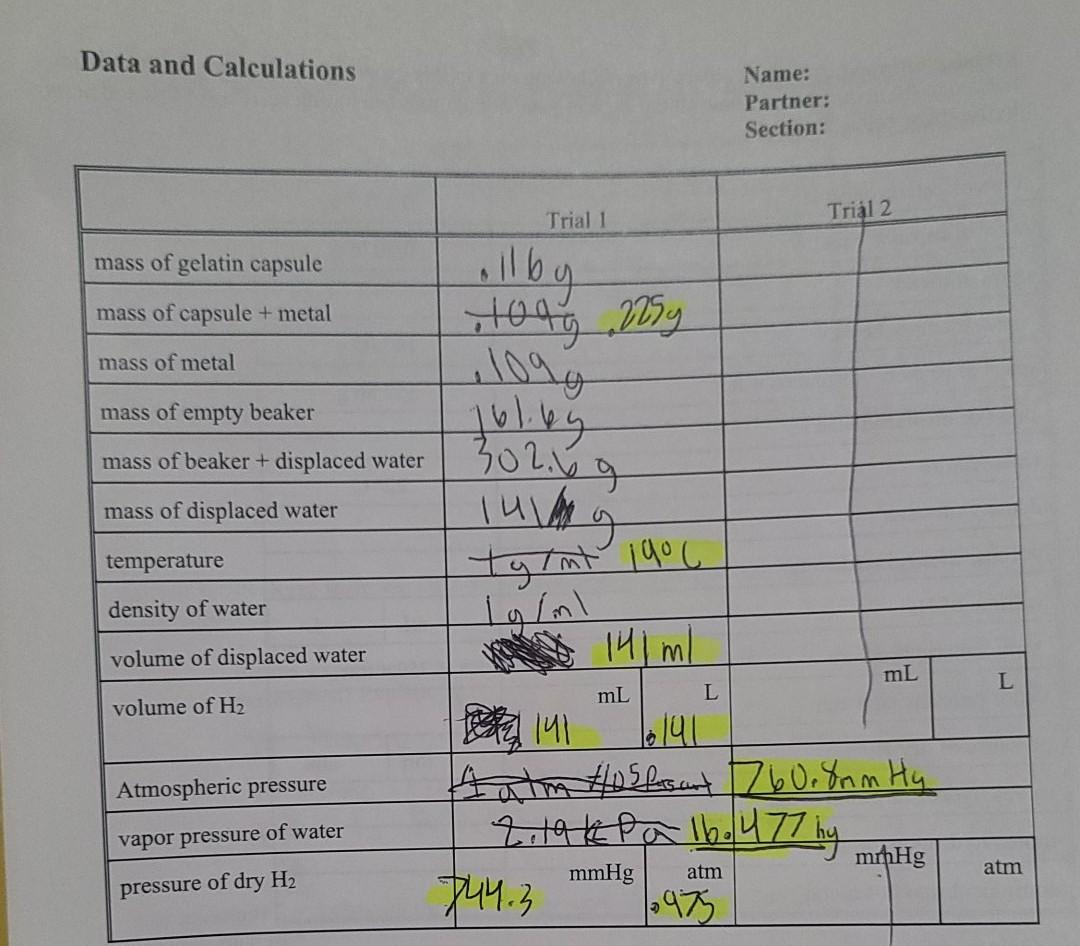 Data and Calculations
Name:
Partner:
Section:
Trial 1 Trial 2
mass of gelatin capsule .116g
mass of capsule + metal .109g .225g
mass of metal .109g
mass of empty beaker 161.6g
mass of beaker + displaced water 302.6 g
mass of displaced water 141 g
temperature 1g/ml 19°C
density of water 1g/ml
volume of displaced water 141 ml
volume of H2 mL L mL L
141 .141
Atmospheric pressure 1 atm 760.8mm Hg
vapor pressure of water 2.19 kPa 16.477 hg
pressure of dry H2 mmHg atm mmHg atm
744.3 .975